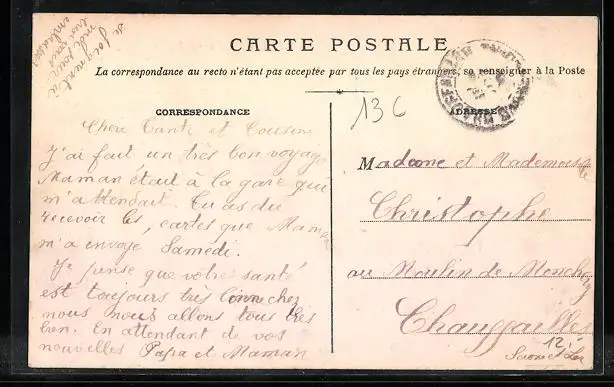 CARTE POSTALE
La correspondance au recto n'étant pas acceptée par tous les pays étrangers, se renseigner à la Poste
CORRESPONDANCE
ADRESSE
13 C
Chère Tante et Cousine
J'ai fait un très bon voyage
Maman était à la gare qui
m'attendait. Tu as du
recevoir les cartes que Maman
m'a envoyé Samedi.
Je pense que votre santé
est toujours très bonne chez
nous nous allons tous très
bien. En attendant de vos
nouvelles Papa et Maman
se joignent à
moi pour
vous
embrasser
Madame et Mademoiselle
Christophe
au Moulin de
Chauffailles
12,-
Saone et Loire